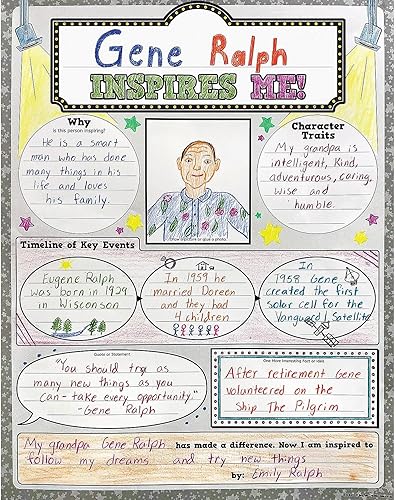 Gene Ralph
INSPIRES ME!
Why
is this person inspiring?
He is a smart
man who has done
many things in his
life and loves
his family.
Draw a picture or glue a photo.
Character
Traits
My grandpa is
intelligent, Kind,
adventurous, caring,
wise and
humble.
Timeline of Key Events
Eugene Ralph
was born in 1929
in Wisconson
In 1959 he
married Doreen
and they had
4 children
In
1958 Gene
created the first
solar cell for the
Vanguard 1 Satellite
Quote or Statement
"You should try as
many new things as you
can - take every opportunity."
- Gene Ralph
One More Interesting Fact or Idea
After retirement Gene
volunteered on the
Ship The Pilgrim
My grandpa Gene Ralph has made a difference. Now I am inspired to
follow my dreams and try new things
by: Emily Ralph